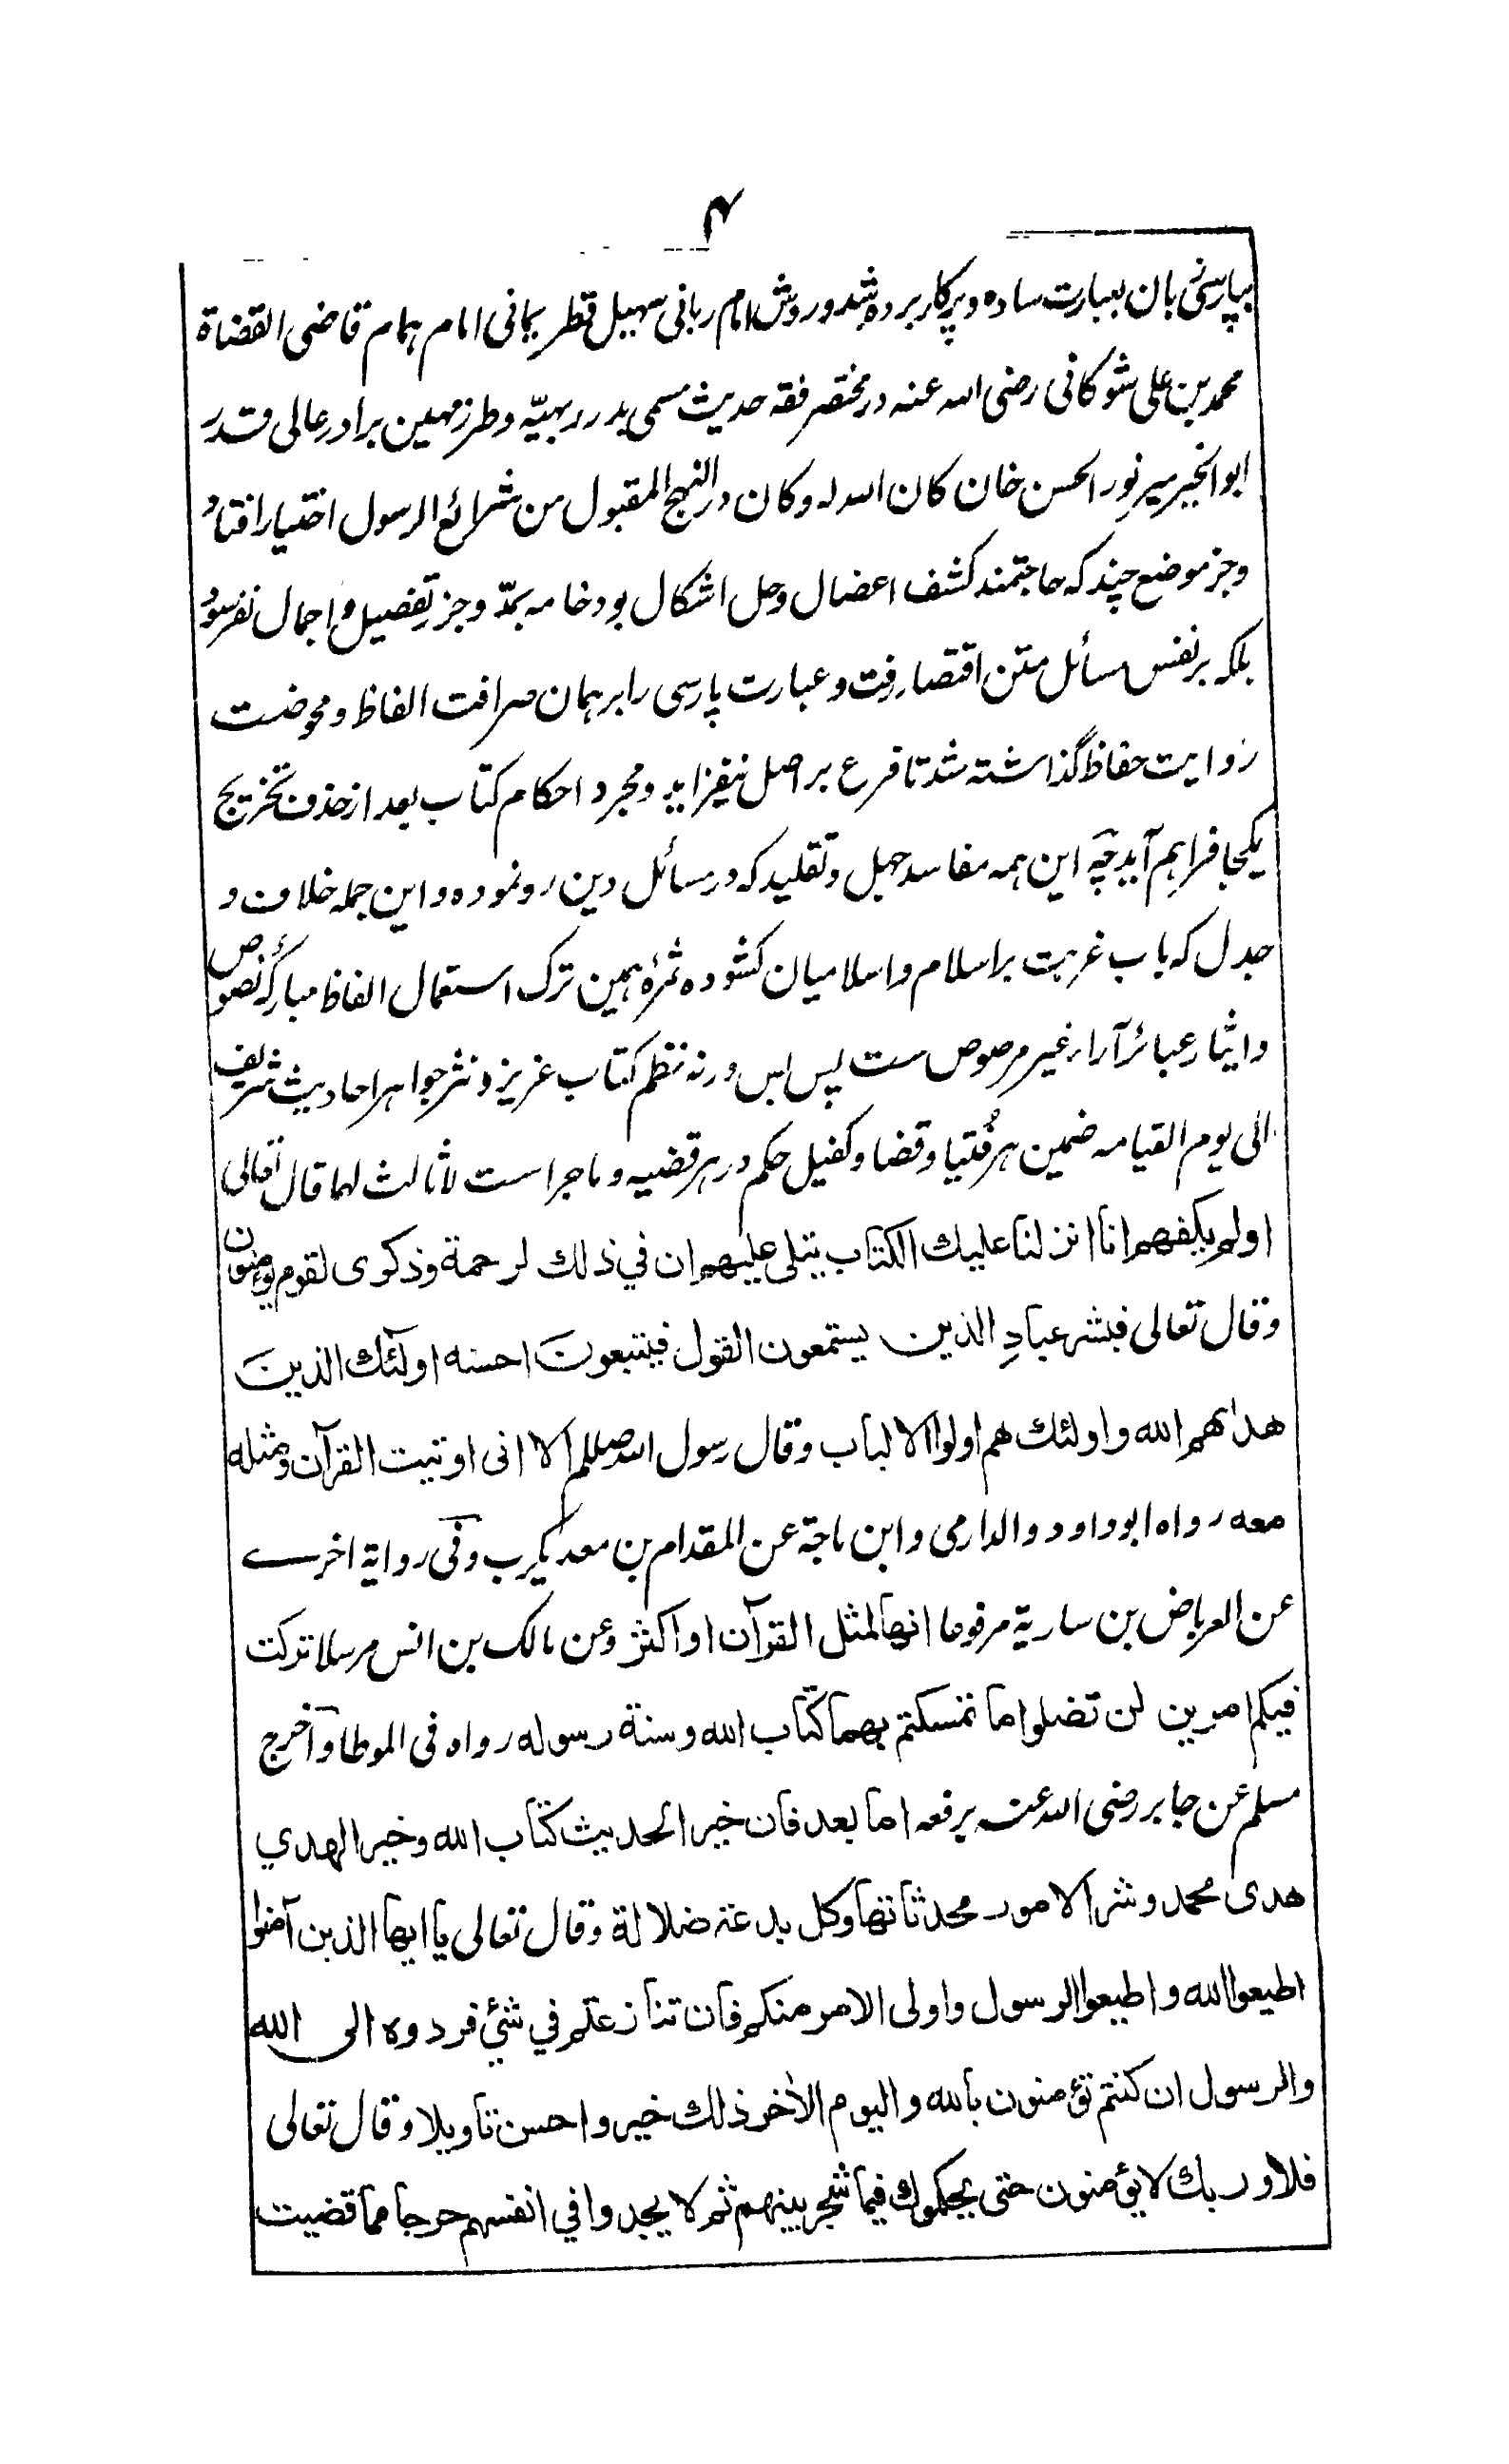 ۴
بپارسی بان بعبارت ساده و پرکار برده شد و روش امام ربانی سهیل قطر یمانی امام همام قاضی القضاة
محمد بن علی شوکانی رضی الله عنه در مختصر فقه حدیث مسمی بدرر بهیّه و طرز مهین برادر عالی قدر
ابو الخیر میر نور الحسن خان کان الله له و کان در النهج المقبول من شرائع الرسول اختیار افتاد
و جز موضع چند که حاجتمند کشف اعضال و حل اشکال بود خامه بمدّ و جز تفصیل و اجمال نفرسود
بلکه بر نفس مسائل متن اقتصار رفت و عبارت پارسی را بر همان صرافت الفاظ و محوضت
روایت حفاظ گذاشته شد تا فرع بر اصل نیفزاید و مجرد احکام کتاب بعد از حذف تخریج
یکجا فراهم آید چه این همه مفاسد جهل و تقلید که در مسائل دین رو نموده و این جمله خلاف و
جدل که باب غربت بر اسلام و اسلامیان کشوده ثمرهٔ همین ترک استعمال الفاظ مبارکهٔ نصوص
و ایثار عبائر آراء غیر مرصوص ست پس و بس ورنه نظم کتاب عزیز و نثر جواهر احادیث شریف
الی یوم القیامه ضمین هر فُتیا و قضا و کفیل حکم در هر قضیه و ماجرا ست لا ثالث لهما قال تعالی
اولم یکفهم انا انزلنا علیك الكتاب یتلی علیهم ان في ذلك لرحمة وذكری لقوم یؤمنون
وقال تعالی فبشر عبادِ الذین یستمعون القول فیتبعونَ احسنه اولٓئك الذینَ
هداهم الله واولئك هم اولوا الالباب وقال رسول الله صللم الا انی اوتیت القرآن ومثله
معه رواه ابو داود والدارمی وابن ماجة عن المقدام بن معد یکرب وفی روایة اخرے
عن العرباض بن ساریة مرفوعا انها لمثل القرآن او اکثر وعن مالک بن انس مرسلا ترکت
فیکم امرین لن تضلوا ما تمسکتم بهما کتاب الله وسنة رسوله رواه فی الموطا واخرج
مسلم عن جابر رضی الله عنه یرفعه اما بعد فان خیر الحدیث کتاب الله وخیر الهدي
هدی محمد وشر الامور محدثاتها وکل بدعة ضلالة وقال تعالی یا ایها الذین آمنوا
اطیعوا الله واطیعوا الرسول واولی الامر منکم فان تنازعتم في شئ فردوه الی الله
والرسول ان کنتم تؤمنون بالله والیوم الاٰخر ذلك خیر واحسن تاویلا وقال تعالی
فلا وربك لا یؤمنون حتی یحکموك فیما شجر بینهم ثم لا یجدوا في انفسهم حرجا مما قضیت